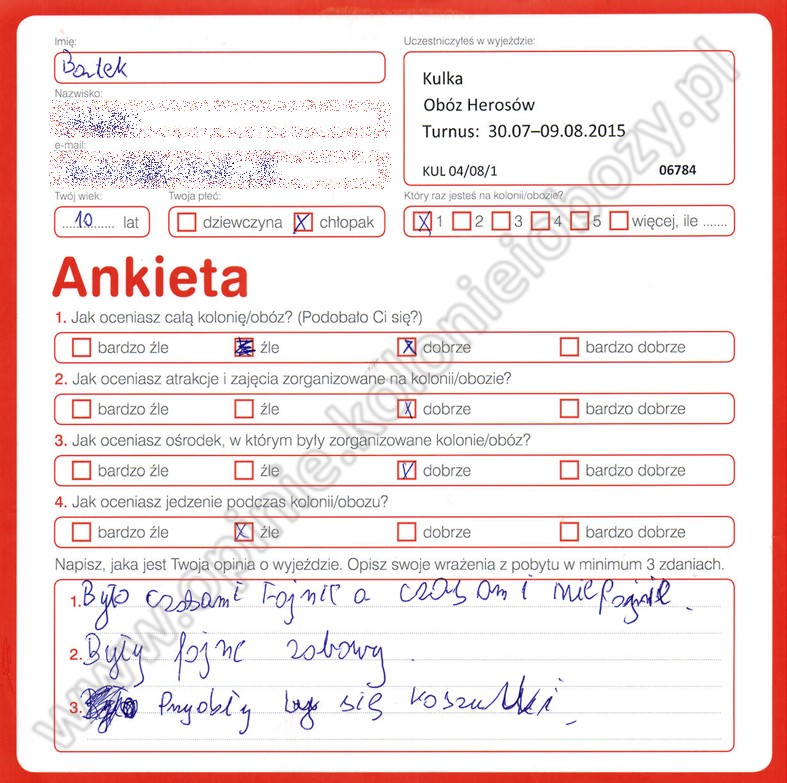 Imię:
Bartek
Uczestniczyłeś w wyjeździe:
Kulka
Obóz Herosów
Turnus: 30.07–09.08.2015
KUL 04/08/1 06784
Nazwisko:
e-mail:
Twój wiek:
10 lat
Twoja płeć:
dziewczyna X chłopak
Który raz jesteś na kolonii/obozie?
X 1 2 3 4 5 więcej, ile .......
Ankieta
1. Jak oceniasz całą kolonię/obóz? (Podobało Ci się?)
bardzo źle źle X dobrze bardzo dobrze
2. Jak oceniasz atrakcje i zajęcia zorganizowane na kolonii/obozie?
bardzo źle źle X dobrze bardzo dobrze
3. Jak oceniasz ośrodek, w którym były zorganizowane kolonie/obóz?
bardzo źle źle dobrze bardzo dobrze
4. Jak oceniasz jedzenie podczas kolonii/obozu?
bardzo źle X źle dobrze bardzo dobrze
Napisz, jaka jest Twoja opinia o wyjeździe. Opisz swoje wrażenia z pobytu w minimum 3 zdaniach.
1. Było czasami fajnie a czasami niefajnie.
2. Były fajne zabawy.
3. Przydały by się koszulki.
www.opinie.kolonieiobozy.pl